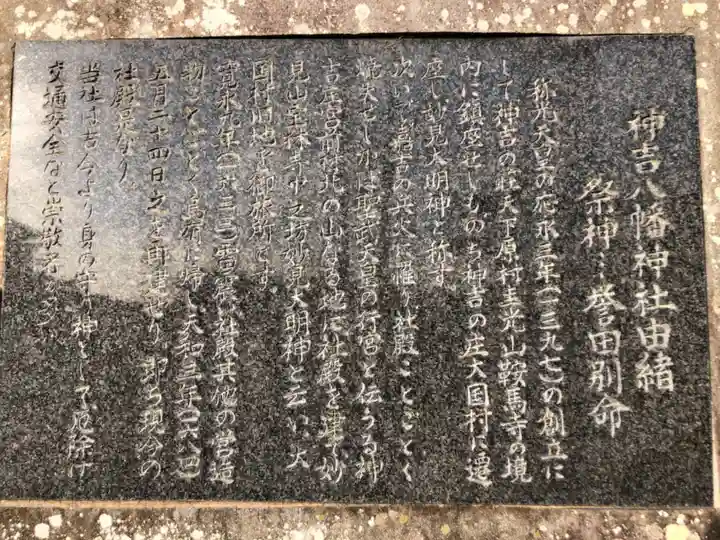 神吉八幡神社由緒
祭神…誉田別命
称光天皇の応永三年(一三九七)の創立に
して神吉の荘天下原村圭光山鞍馬寺の境
内に鎮座せしものち神吉の庄大国村に遷
座し妙見大明神と称す。
次いで嘉吉の兵火に罹り社殿ことごとく
焼失せしかば聖武天皇の行宮と伝うる神
吉庄宮前村光の山なる地に社殿を建て妙
見山宝林寺中之坊妙見大明神と云い、大
国村旧地を御旅所とす。
寛永九年(一六三二)雷震い社殿其他の営造
物ことごとく烏有に帰し天和三年(一六八四)
五月二十四日之を再建せり。即ち現今の
社殿是なり。
当社は古今より身の守り神として厄除け
交通安全など崇敬者